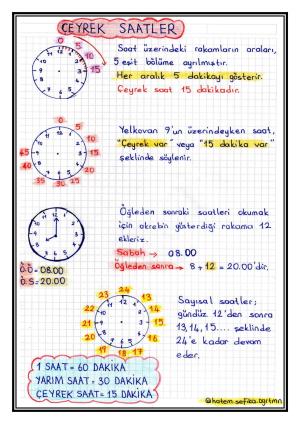 ÇEYREK SAATLER
0
5
10
15
Saat üzerindeki rakamların araları,
5 eşit bölüme ayrılmıştır.
Her aralık 5 dakikayı gösterir.
Çeyrek saat 15 dakikadır.
0
5
10
15
20
25
30
35
40
45
Yelkovan 9'un üzerindeyken saat,
"Çeyrek var" veya "15 dakika var"
şeklinde söylenir.
Öğleden sonraki saatleri okumak
için akrebin gösterdiği rakama 12
ekleriz.
Sabah → 08.00
Öğleden sonra → 8 + 12 = 20.00'dir.
Ö.Ö = 08.00
Ö.S = 20.00
24
13
14
15
16
17
18
19
20
21
22
23
Sayısal saatler;
gündüz 12'den sonra
13, 14, 15.... şeklinde
24'e kadar devam
eder.
1 SAAT = 60 DAKİKA
YARIM SAAT = 30 DAKİKA
ÇEYREK SAAT = 15 DAKİKA
@hatem.sefika.ogrtmn